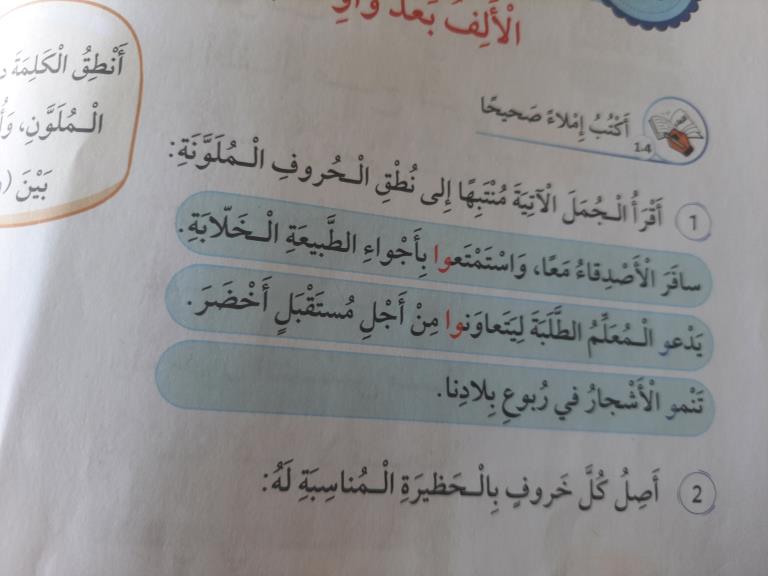 الْأَلِفُ بَعْدَ واوِ
أَنْطِقُ الْكَلِمَةَ
الْـمُلَوَّنِ،
بَيْنَ
أَكْتُبُ إِمْلاءً صَحيحًا
1.4
1 أَقْرَأُ الْـجُمَلَ الْآتِيَةَ مُنْتَبِهًا إِلى نُطْقِ الْـحُروفِ الْـمُلَوَّنَةِ:
سافَرَ الْأَصْدِقاءُ مَعًا، وَاسْتَمْتَعوا بِأَجْواءِ الطَّبيعَةِ الْـخَلّابَةِ.
يَدْعو الْـمُعَلِّمُ الطَّلَبَةَ لِيَتَعاوَنوا مِنْ أَجْلِ مُستَقْبَلٍ أَخْضَرَ.
تَنْمو الْأَشْجارُ في رُبوعِ بِلادِنا.
2 أَصِلُ كُلَّ خَروفٍ بِالْـحَظيرَةِ الْـمُناسِبَةِ لَهُ: